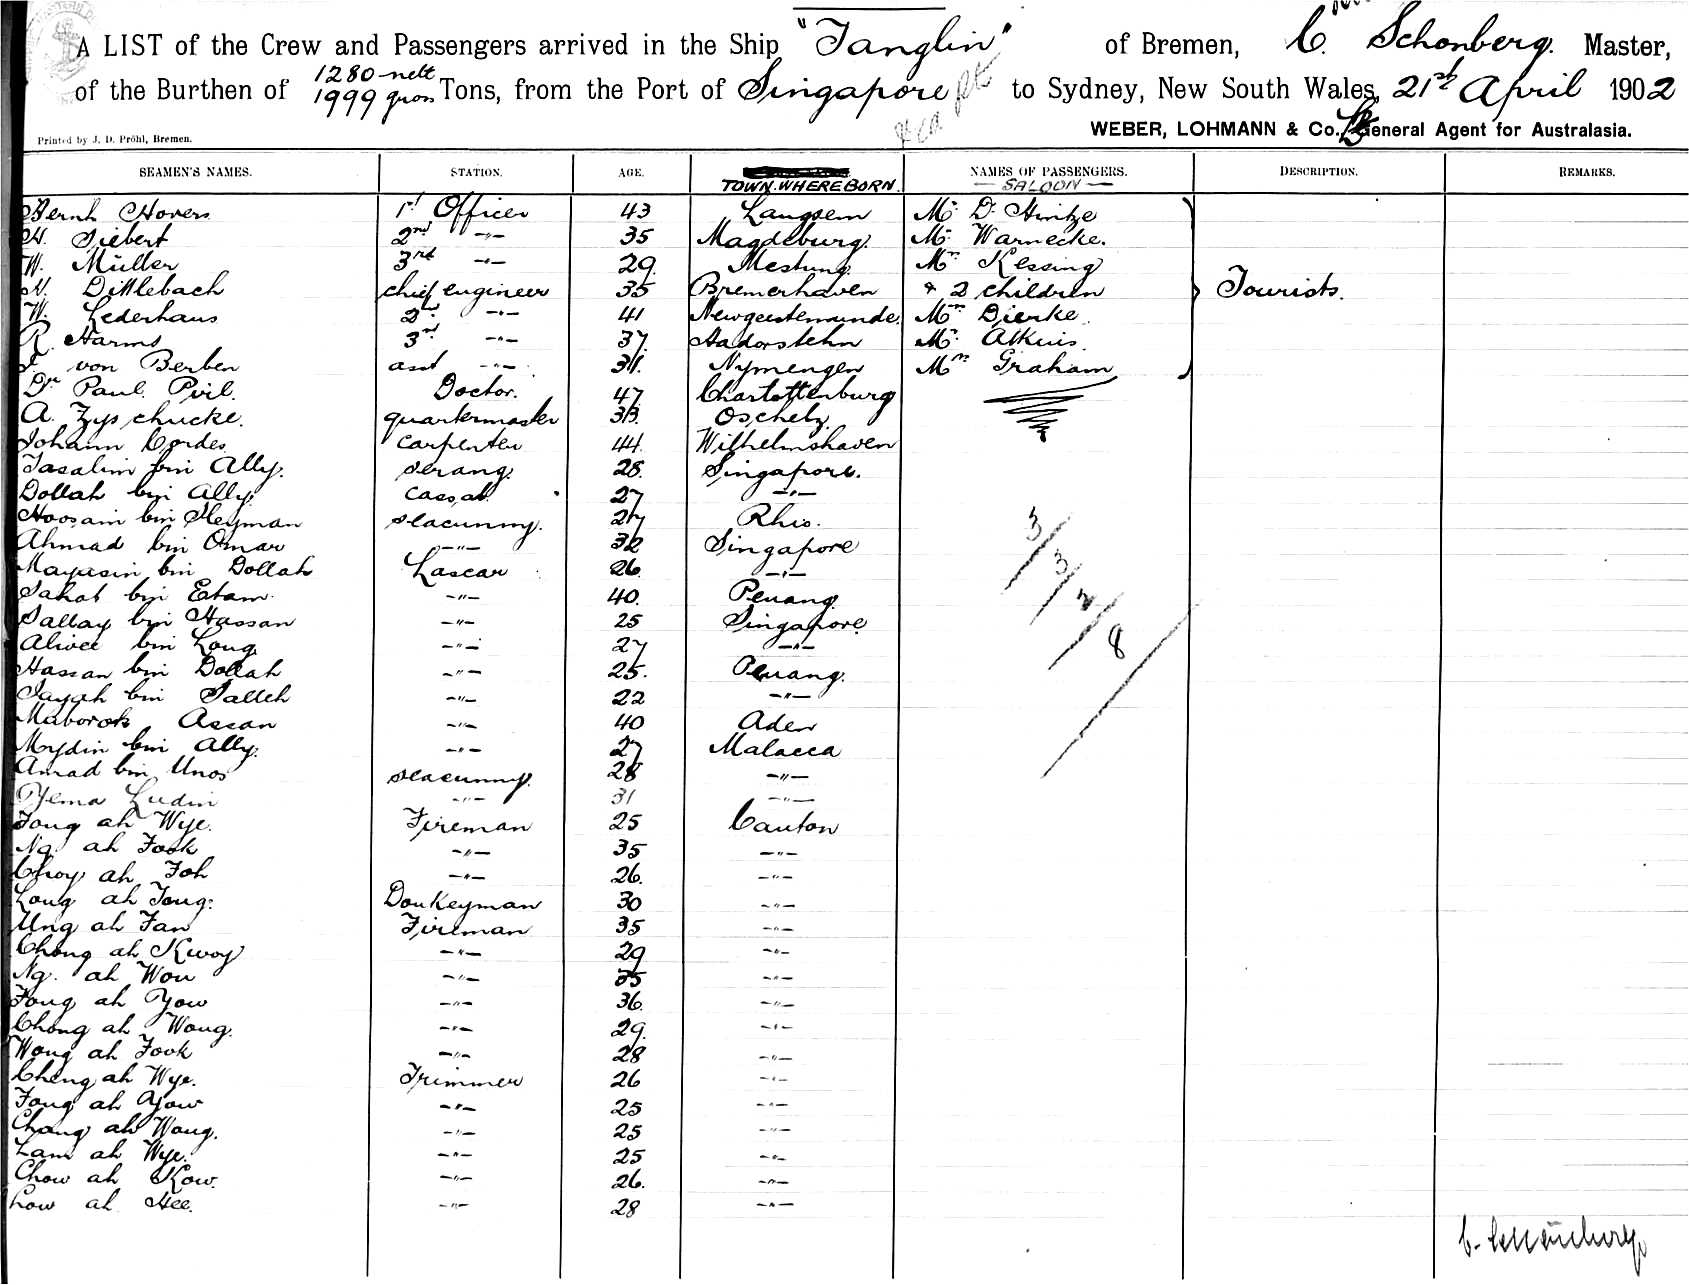 A LIST of the Crew and Passengers arrived in the Ship "Tanglin" of Bremen, C. Schonberg. Master,
of the Burthen of 1280 nett 1999 gross Tons, from the Port of Singapore to Sydney, New South Wales, 21st April 1902
WEBER, LOHMANN & Co., General Agent for Australasia.
Printed by J. D. Pröhl, Bremen.
SEAMEN'S NAMES. STATION. AGE. TOWN WHERE BORN. NAMES OF PASSENGERS. DESCRIPTION. REMARKS.
— SALOON —
Bernh Hovers 1st Officer 43 Langsem Mr. D. Hintze
H. Siebert 2nd -"- 35 Magdeburg. Mr. Warnecke.
W. Müller 3rd -"- 29. Mrs Kessing
Dittlebach chief engineer 35 Bremerhaven & 2 children Tourists.
W. Lederhaus 2nd -"- 41 Newgeestemunde. Dierke.
R. Harms 3rd -"- 37. Mr. Atkins.
F. von Berben asst -"- 31. Nymengen Mrs Graham
Dr Paul Doctor. 47. Charlottenburg
A. Zyschucke. quartermaster 33. Oschelz
Johann Cordes carpenter 44. Wilhelmshaven
Tasalim bin Ally. serang. 28. Singapore.
Dollah bin Ally. Cassab. 27 -"-
Hoosain bin Sleyman seacunny. 27 Rhio.
Ahmad bin Omar -"- 32 Singapore
Mayasin bin Dollah Lascar 26 -"-
Sahat bin Etam -"- 40. Penang.
Sallay bin Hassan -"- 25 Singapore.
Aliwee bin Long -"- 27 -"-
Hassan bin Dollah -"- 25. Penang.
Sayah bin Salleh -"- 22 -"-
Maborok Assan -"- 40 Aden
Mydin bin Ally. -"- 27 Malacca
Amad bin Unos seacunny. 28 -"-
Ludin -"- 31 -"-
Fong ah Wye. Fireman 25 Canton
Ng ah Fook -"- 35 -"-
Choy ah Foh -"- 26. -"-
Long ah Tong. Donkeyman 30 -"-
Ung ah Fan Fireman 35 -"-
Chong ah Kwoy -"- 29 -"-
Ng. ah Won -"- 35 -"-
Fong ah Yow -"- 36. -"-
Chong ah Wong. -"- 29. -"-
Wong ah Fook -"- 28 -"-
Cheng ah Wye. Trimmer 26 -"-
Fong ah Yow -"- 25 -"-
Chang ah Wong. -"- 25 -"-
Lam ah Wye. -"- 25 -"-
Chow ah Kow. -"- 26. -"-
Low ah Hee. -"- 28 -"-
3/
3/
2/
8